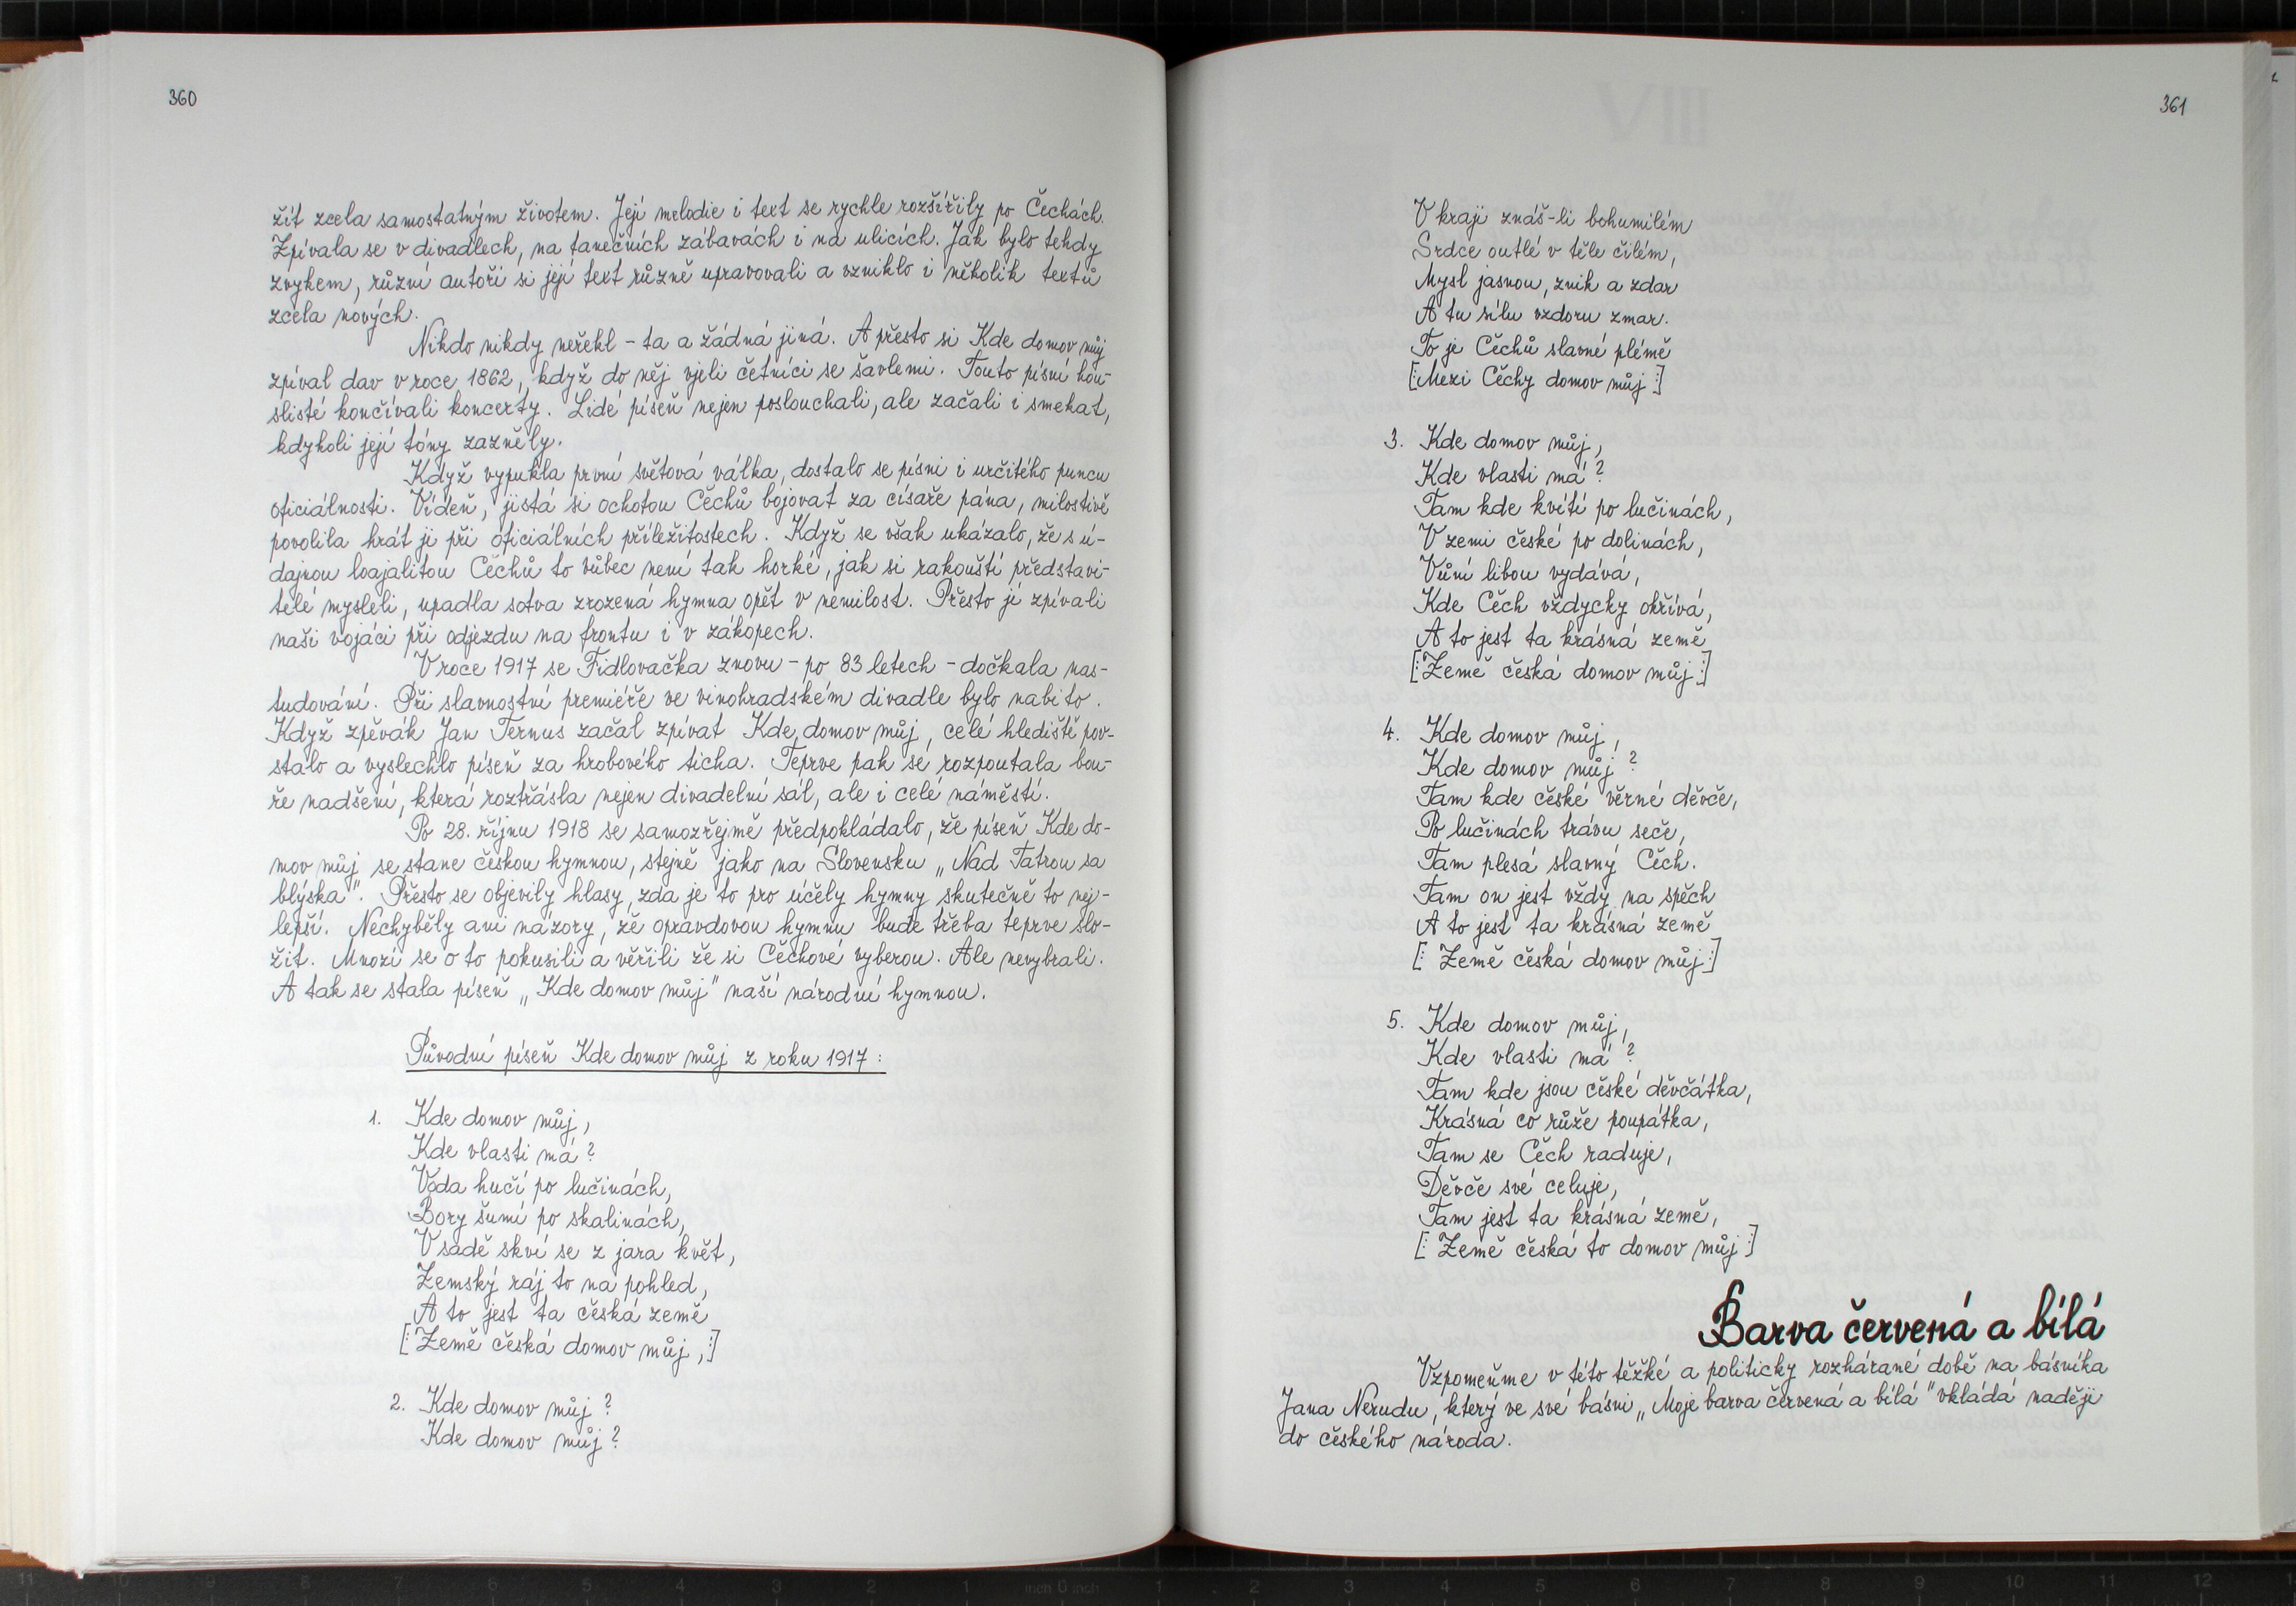 360
žít zcela samostatným životem. Její melodie i text se rychle rozšířily po Čechách.
Zpívala se v divadlech, na tanečních zábavách i na ulicích. Jak bylo tehdy
zvykem, různí autoři si její text různě upravovali a vzniklo i několik textů
zcela nových.
Nikdo nikdy neřekl – ta a žádná jiná. A přesto si Kde domov můj
zpíval dav v roce 1862, když do něj vjeli četníci se šavlemi. Touto písní hou-
slisté končívali koncerty. Lidé píseň nejen poslouchali, ale začali i smekat,
kdykoli její tóny zazněly.
Když vypukla první světová válka, dostalo se písni i určitého puncu
oficiálnosti. Vídeň, jistá si ochotou Čechů bojovat za císaře pána, milostivě
povolila hrát ji při oficiálních příležitostech. Když se však ukázalo, že s ú-
dajnou loajalitou Čechů to vůbec není tak horké, jak si rakouští představi-
telé mysleli, upadla sotva zrozená hymna opět v nemilost. Přesto ji zpívali
naši vojáci při odjezdu na frontu i v zákopech.
V roce 1917 se Fidlovačka znovu – po 83 letech – dočkala nas-
tudování. Při slavnostní premiéře ve vinohradském divadle bylo nabito.
Když zpěvák Jan Ternus začal zpívat Kde domov můj, celé hlediště pov-
stalo a vyslechlo píseň za hrobového ticha. Teprve pak se rozpoutala bou-
ře nadšení, která roztřásla nejen divadelní sál, ale i celé náměstí.
Po 28. říjnu 1918 se samozřejmě předpokládalo, že píseň Kde do-
mov můj se stane českou hymnou, stejně jako na Slovensku „Nad Tatrou sa
blýska". Přesto se objevily hlasy, zda je to pro účely hymny skutečně to nej-
lepší. Nechyběly ani názory, že opravdovou hymnu bude třeba teprve slo-
žit. Mnozí se o to pokusili a věřili že si Čechové vyberou. Ale nevybrali.
A tak se stala píseň „Kde domov můj" naší národní hymnou.
Původní píseň Kde domov můj z roku 1917:
1. Kde domov můj,
Kde vlasti má?
Voda hučí po lučinách,
Bory šumí po skalinách,
V sadě skví se z jara květ,
Zemský ráj to na pohled,
A to jest ta česká země
[: Země česká domov můj, :]
2. Kde domov můj?
Kde domov můj?
361
V kraji znáš-li bohumilém
Srdce outlé v těle čilém,
Mysl jasnou, znik a zdar
A tu sílu vzdoru zmar.
To je Čechů slavné plémě
[: Mezi Čechy domov můj :]
3. Kde domov můj,
Kde vlasti má?
Tam kde kvítí po lučinách,
V zemi české po dolinách,
Vůni libou vydává,
Kde Čech vždycky okřívá,
A to jest ta krásná země
[: Země česká domov můj :]
4. Kde domov můj,
Kde domov můj?
Tam kde české věrné děvče,
Po lučinách trávu seče,
Tam plesá slavný Čech.
Tam on jest vždy na spěch
A to jest ta krásná země
[: Země česká domov můj :]
5. Kde domov můj,
Kde vlasti má?
Tam kde jsou české děvčátka,
Krásná co růže poupátka,
Tam se Čech raduje,
Děvče své celuje,
Tam jest ta krásná země,
[: Země česká to domov můj :]
Barva červená a bílá
Vzpomeňme v této těžké a politicky rozhárané době na básníka
Jana Nerudu, který ve své básni „Moje barva červená a bílá" vkládá naději
do českého národa.